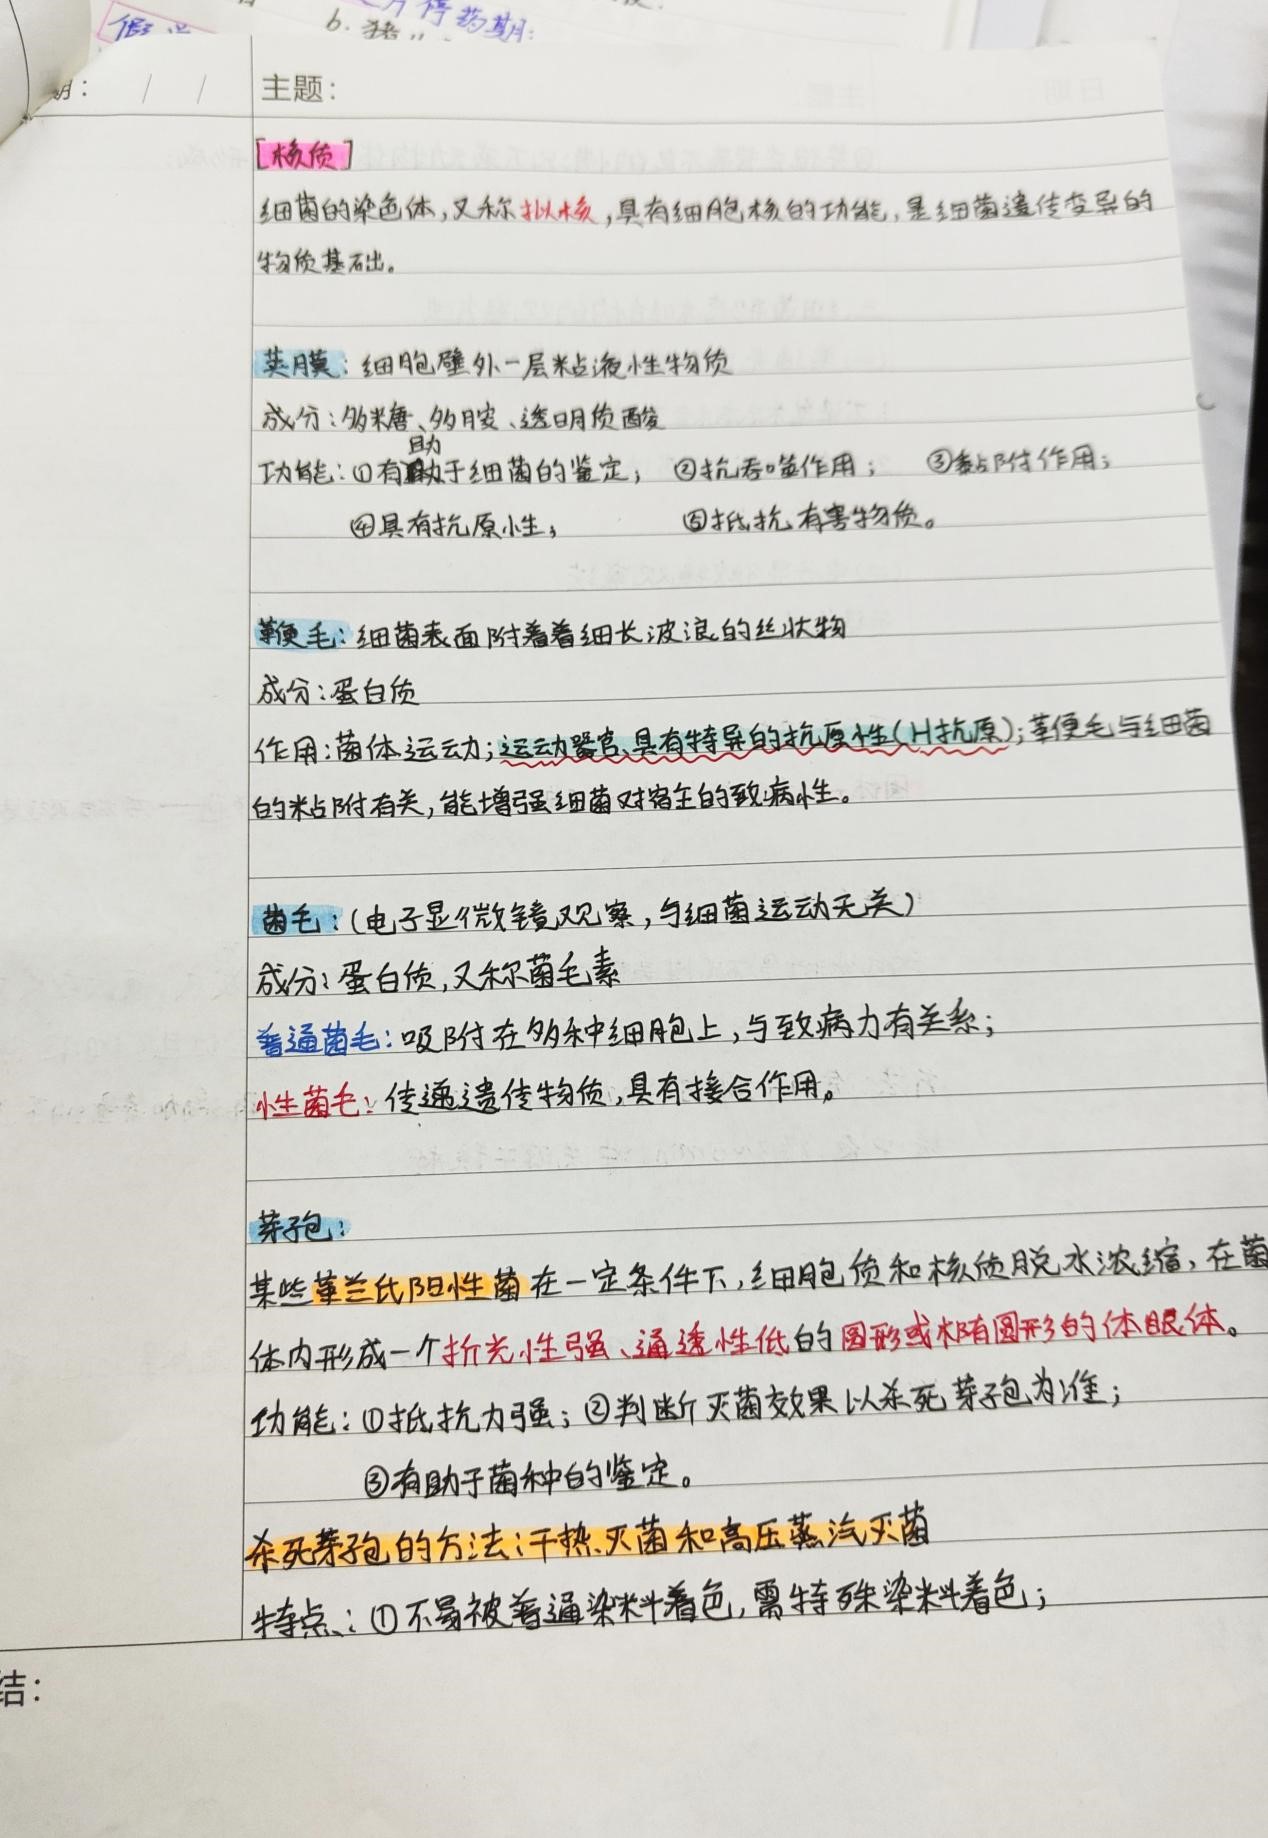 b. 猪
停药期:
期: / / 主题:
[核质]
细菌的染色体,又称拟核,具有细胞核的功能,是细菌遗传变异的
物质基础。
荚膜:细胞壁外一层粘液性物质
成分:多糖、多肽、透明质酸
助
功能:①有于细菌的鉴定; ②抗吞噬作用; ③黏附作用;
④具有抗原性; ⑤抵抗有害物质。
鞭毛:细菌表面附着着细长波浪的丝状物
成分:蛋白质
作用:菌体运动;运动器官、具有特异的抗原性(H抗原);鞭毛与细菌
的粘附有关,能增强细菌对宿主的致病性。
菌毛:(电子显微镜观察,与细菌运动无关)
成分:蛋白质,又称菌毛素
普通菌毛:吸附在多种细胞上,与致病力有关系;
性菌毛:传递遗传物质,具有接合作用。
芽孢:
某些革兰氏阳性菌在一定条件下,细胞质和核质脱水浓缩,在菌
体内形成一个折光性强、通透性低的圆形或椭圆形的休眠体。
功能:①抵抗力强;②判断灭菌效果以杀死芽孢为准;
③有助于菌种的鉴定。
杀死芽孢的方法:干热灭菌和高压蒸汽灭菌
特点:①不易被普通染料着色,需特殊染料着色;
结: